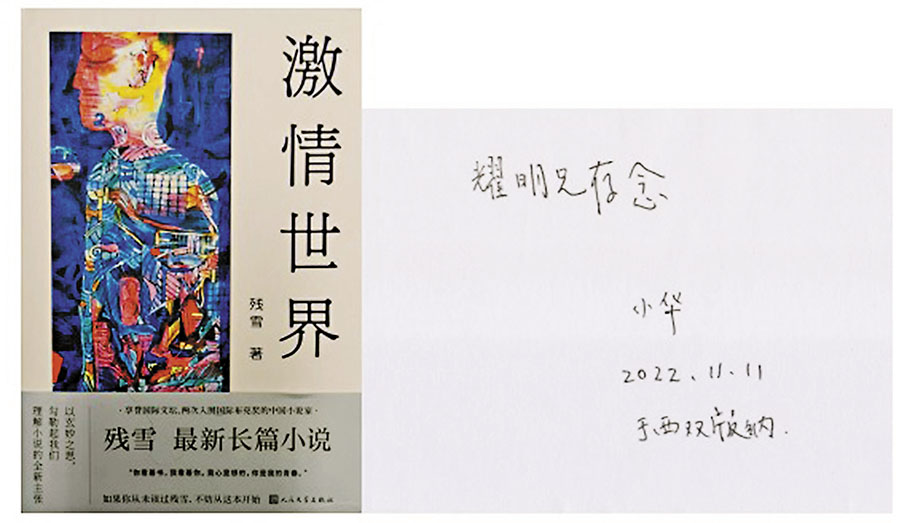 激情世界
残雪 著
·享誉国际文坛、两次入围国际布克奖的中国小说家·
残雪 最新长篇小说
以玄妙之思,
勾勒起我们
理解小说的全新主张
“你看着书,我看着你。我心里想的,你是我的青春。”
如果你从未读过残雪,不妨从这本开始
人民文学出版社
耀明兄存念
小华
2022.11.11
于西双版纳.